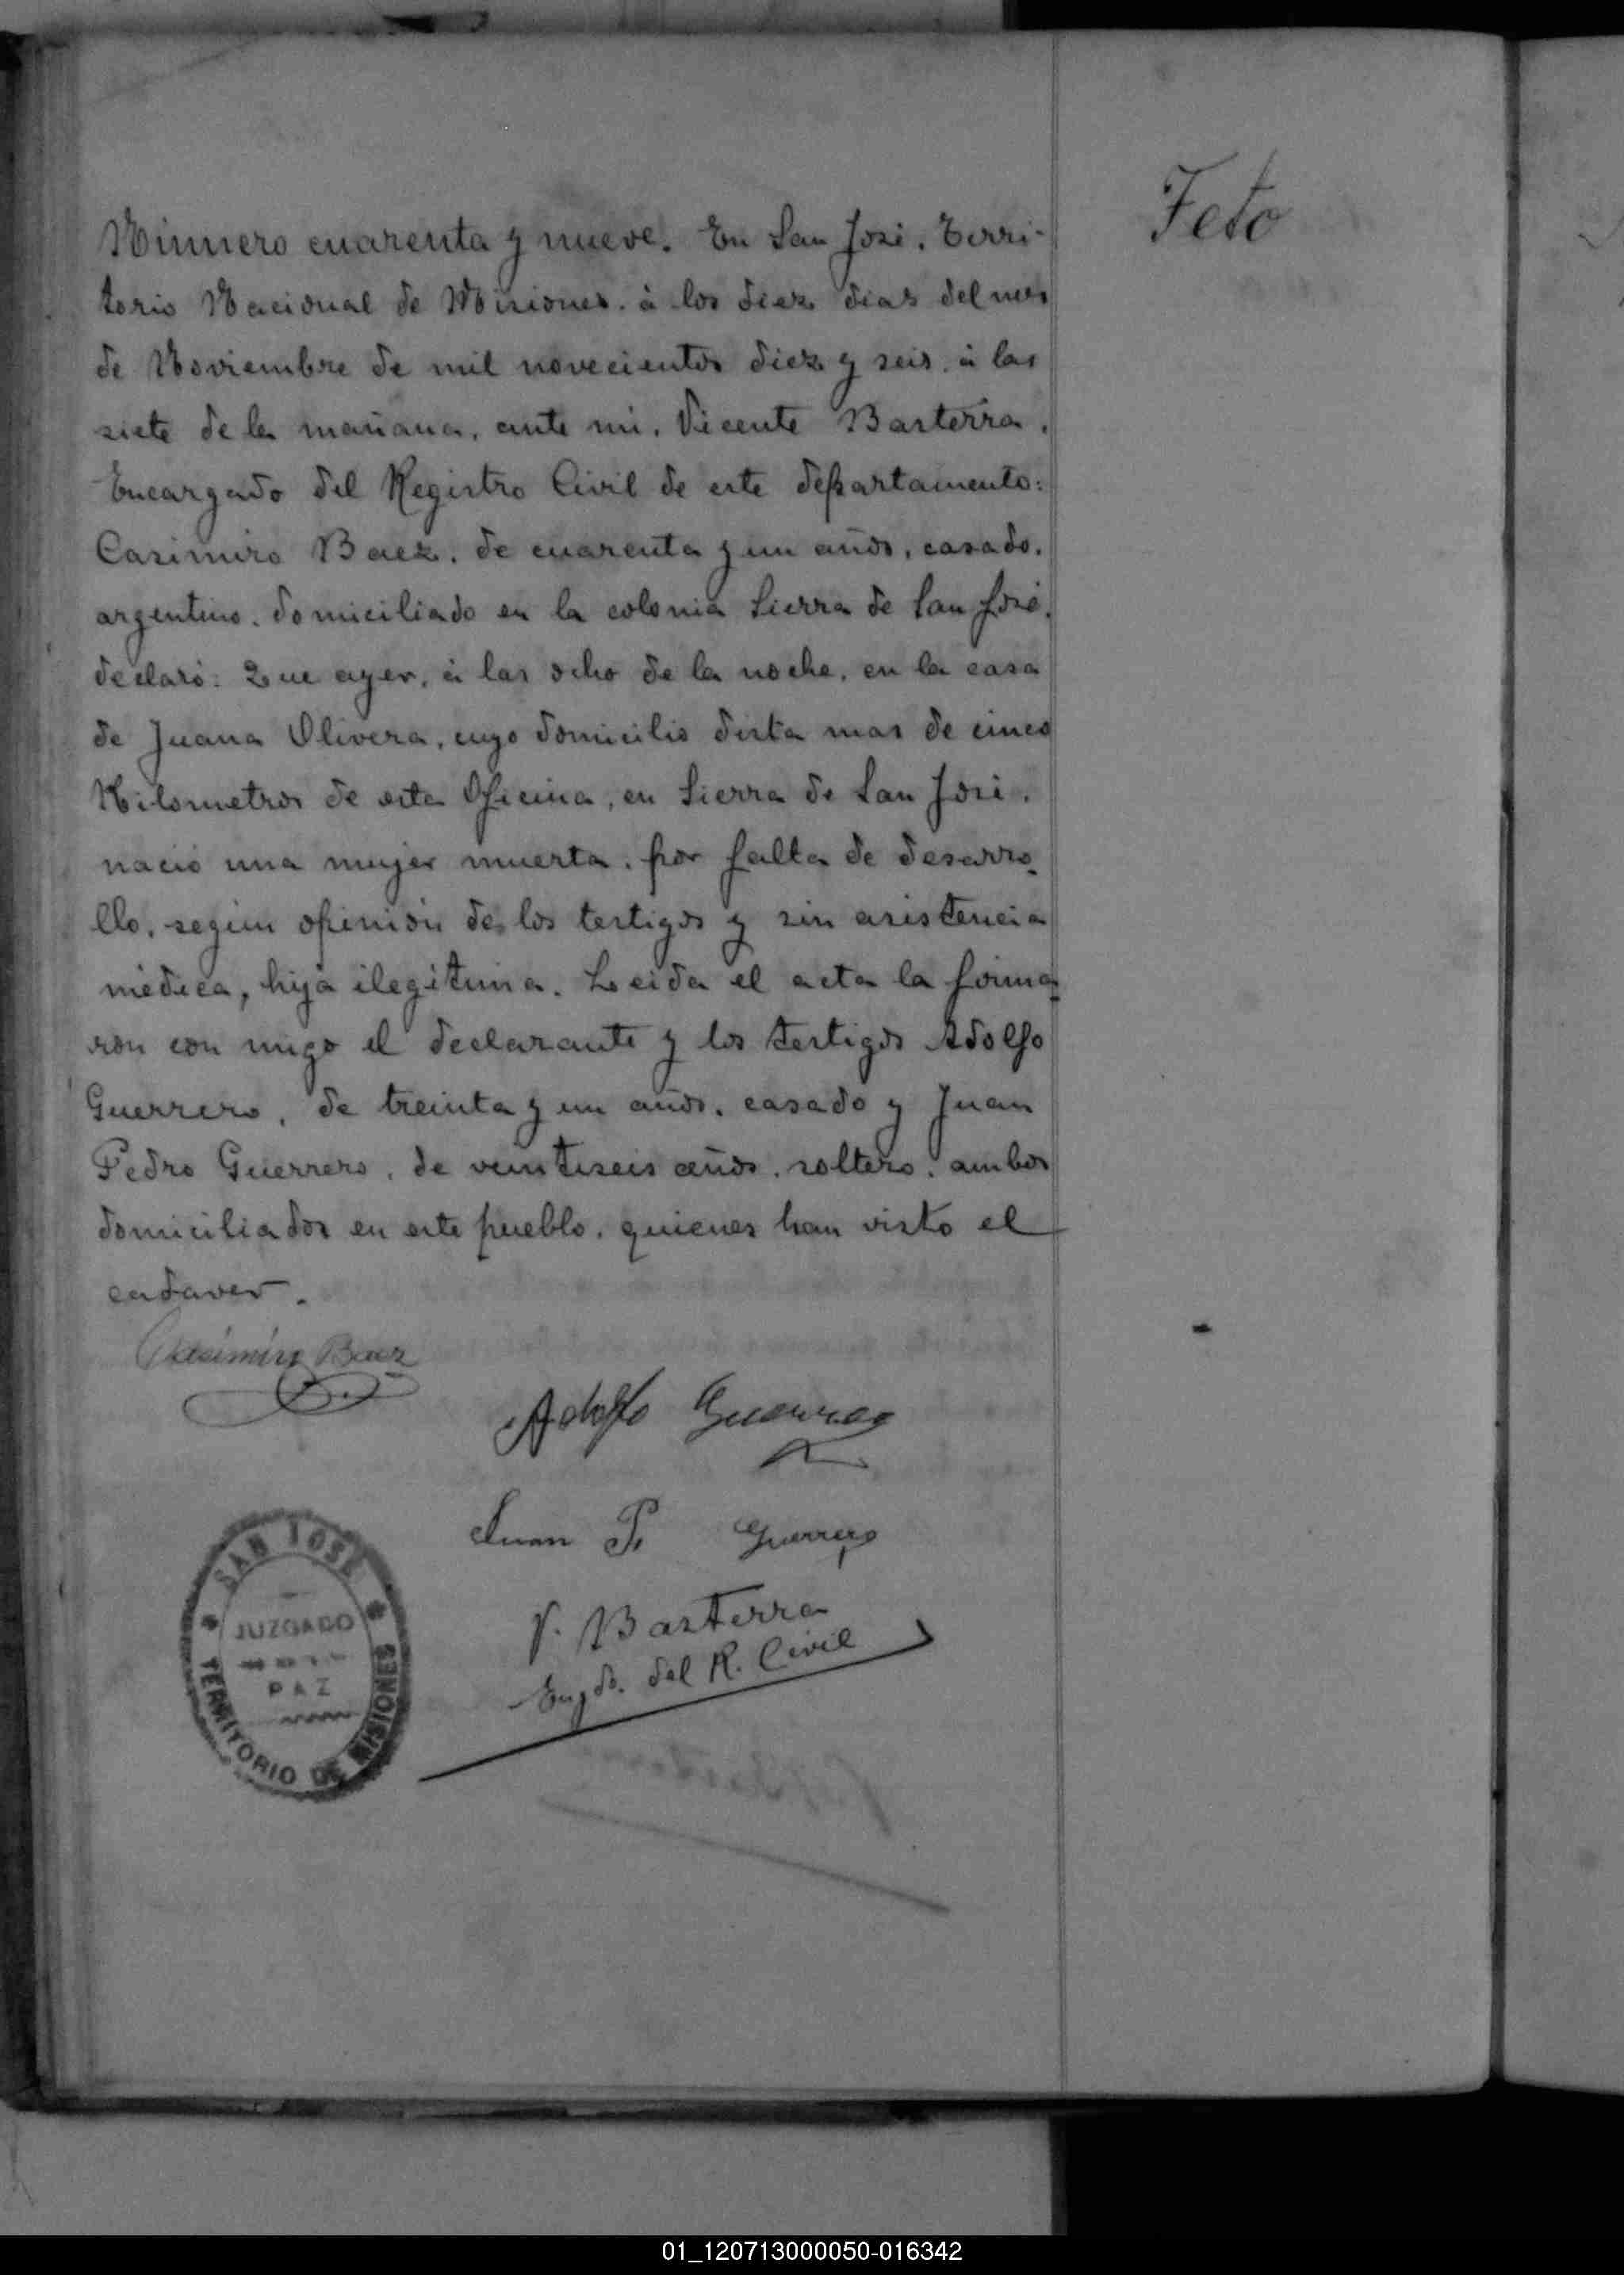 Feto
Número cuarenta y nueve. En San José, Terri-
torio Nacional de Misiones, à los diez dias del mes
de Noviembre de mil novecientos diez y seis, à las
siete de la mañana, ante mi, Vicente Basterra,
Encargado del Registro Civil de este departamento:
Casimiro Baez, de cuarenta y un años, casado,
argentino, domiciliado en la colonia Sierra de San José,
declaró: Que ayer, à las ocho de la noche, en la casa
de Juana Olivera, cuyo domicilio dista mas de cinco
Kilometros de esta Oficina, en Sierra de San José,
nació una mujer muerta, por falta de desarro-
llo, según opinión de los testigos y sin asistencia
médica, hija ilegítima. Leida el acta la firma-
ron con migo el declarante y los testigos Adolfo
Guerrero, de treinta y un años, casado y Juan
Pedro Guerrero, de veintiseis años, soltero, ambos
domiciliados en este pueblo, quienes han visto el
cadaver.
Casimiro Baez
Adolfo Guerrero
Juan P. Guerrero
V. Basterra
Engdo. del R. Civil
SAN JOSE
JUZGADO
DE
PAZ
TERRITORIO DE MISIONES
01_120713000050-016342